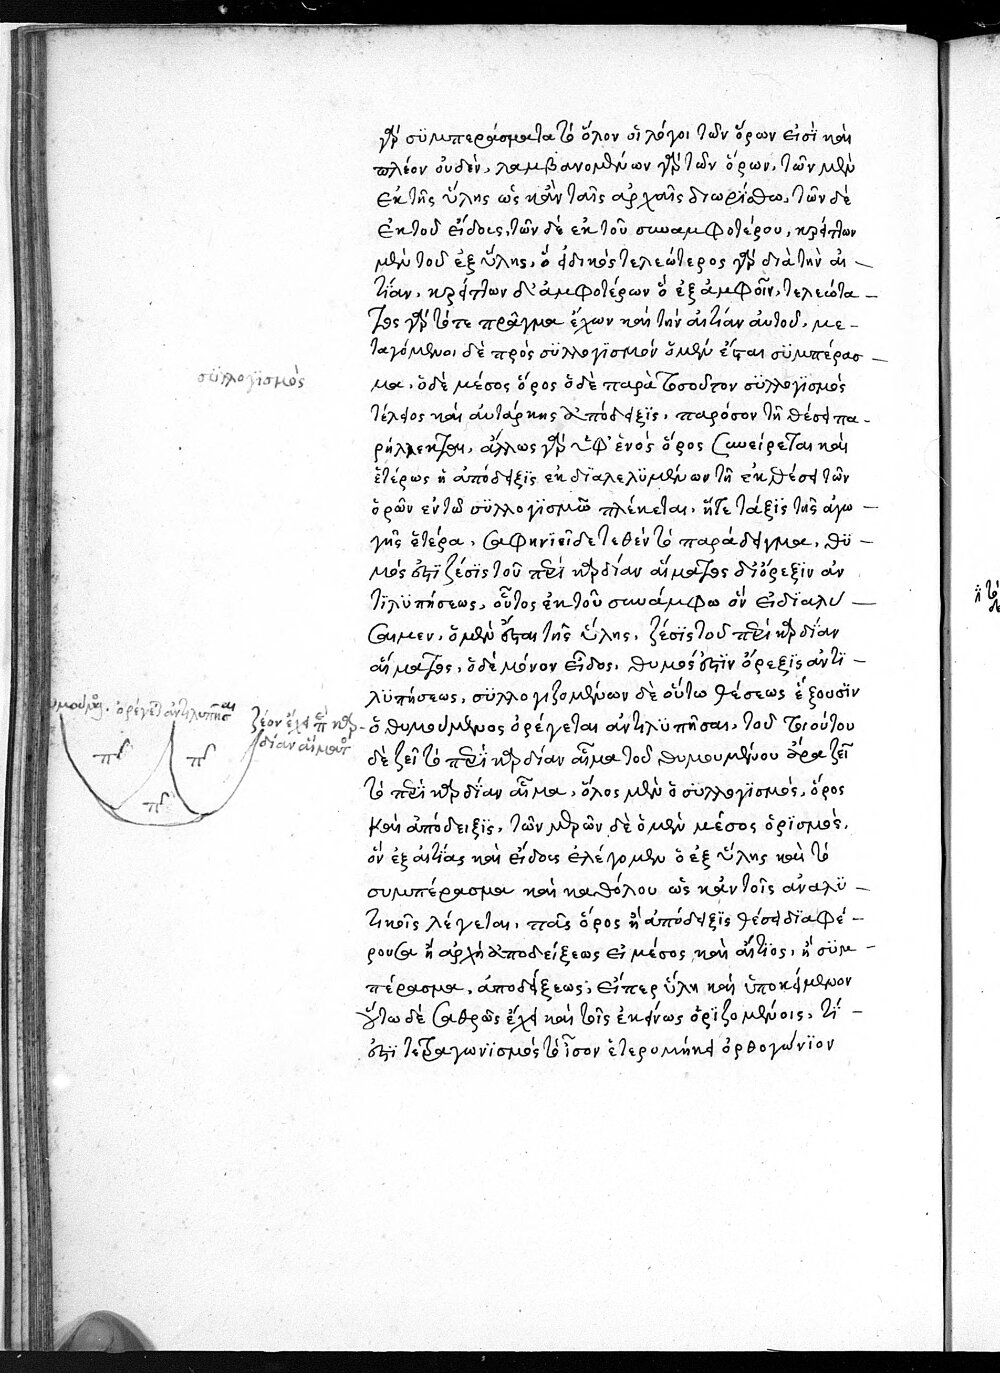 γὰρ συμπεράσματα τὸ ὅλον οἱ λόγοι τῶν ὅρων εἰσὶ καὶ
πλέον οὐδὲν, λαμβανομένων γὰρ τῶν ὅρων, τῶν μὲν
ἐκ τῆς ὕλης ὡς κἀν ταῖς ἀρχαῖς διωρίσθω, τῶν δὲ
ἐκ τοῦ εἴδους, τῶν δὲ ἐκ τοῦ συναμφοτέρου, κρείττων
μὲν τοῦ ἐξ ὕλης, ὁ εἰδικὸς τελεώτερος γὰρ διὰ τὴν αἰ –
τίαν, κρείττων δ' ἀμφοτέρων ὁ ἐξ ἀμφοῖν, τελεώτα –
τος γὰρ τό τε πρᾶγμα ἔχων καὶ τὴν αἰτίαν αὐτοῦ, με –
ταγόμενοι δὲ πρὸς συλλογισμὸν ὁ μὲν ἔσται συμπέρασ –
μα, ὁ δὲ μέσος ὅρος ὁ δὲ παρὰ τοσοῦτον συλλογισμὸς
τέλειος καὶ αὐτάρκης ἀπόδειξις, παρόσον τῇ θέσει πα –
ρήλλακται, ἄλλως γὰρ ἐφ' ἑνὸς ὅρος συνείρεται καὶ
ἑτέρως ἡ ἀπόδειξις ἐκ διαλελυμένων τῇ ἐκθέσει τῶν
ὁρῶν ἐν τῷ συλλογισμῷ πλέκεται, ἥ τε τάξις τῆς ἀγω –
γῆς ἑτέρα, σαφηνιεῖ δὲ τεθὲν τὸ παράδειγμα, θυ –
μός ἐστι ζέσις τοῦ περὶ καρδίαν αἵματος δι' ὄρεξιν ἀν
τιλυπήσεως, οὗτος ἐκ τοῦ συνάμφω ὃν εἰ διαλύ –
σαιμεν, ὁ μὲν ἔσται τῆς ὕλης, ζέσις τοῦ περὶ καρδίαν
αἵματος, ὁ δὲ μόνον εἶδος, θυμός ἐστιν ὄρεξις ἀντι –
λυπήσεως, συλλογιζομένων δὲ οὕτω θέσεως ἕξουσιν
ὁ θυμούμενος ὀρέγεται ἀντιλυπῆσαι, τοῦ τοιούτου
δὲ ζεῖ τὸ περὶ καρδίαν αἷμα τοῦ θυμουμένου ἄρα ζεῖ
τὸ περὶ καρδίαν αἷμα, ὅλος μὲν ὁ συλλογισμὸς, ὅρος
καὶ ἀπόδειξις, τῶν μερῶν δὲ ὁ μὲν μέσος ὁρισμὸς,
ὃν ἐξ αἰτίας καὶ εἴδους ἐλέγομεν ὁ ἐξ ὕλης καὶ τὸ
συμπέρασμα καὶ καθόλου ὡς κἀν τοῖς ἀναλυ –
τικοῖς λέγεται, πᾶς ὅρος ἢ ἀπόδειξις θέσει διαφέ –
ρουσα ἢ ἀρχὴ ἀποδείξεως εἰ μέσος καὶ αἴτιος, ἢ συμ –
πέρασμα, ἀποδείξεως, εἴπερ ὕλη καὶ ὑποκείμενον
οὕτω δὲ σαθρῶς ἔχει καὶ τοῖς ἐκείνως ὁριζομένοις, τί –
ἐστι τετραγωνισμὸς τὸ ἴσον ἑτερομήκει ὀρθογώνιον
συλλογισμὸς
ὀρέγεται ἀντιλυπῆσαι
ζέον ἔχει τὸ περὶ καρ
δίαν αἷμα